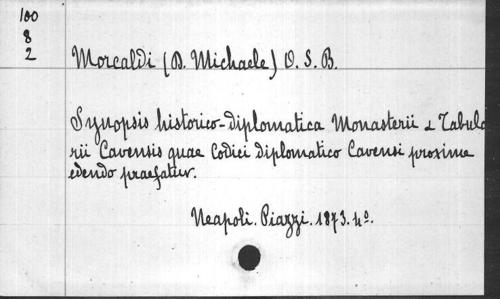 100
8
2
Morcaldi (D. Michaele) O. S. B.
Synopsis historico-diplomatica Monasterii & Tabula
rii Cavensis quae Codici diplomatico Cavensi proxime
edendo praefatur.
Neapoli. Piazzi. 1873. 4º.